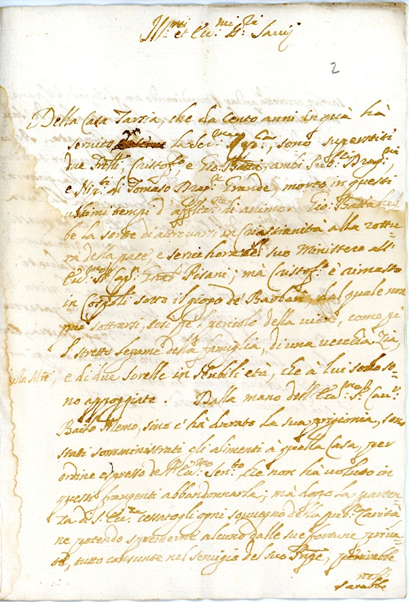 Ill.mi et Ecc.mi S.ri Savij
2
Della Casa Tarsia, che da cento anni in quà hà
servito la Ser.ma Rep.ca, sono superstiti
due Frělli Cristof.o e Gio: Batta, ambi
e di Tomaso Grande, morto in questi
ultimi tempi d'afflit.ne di animo. Gio: Batta
be la sorte di ritrovarsi in Christianità alla rottu
ra della pace, e serve hora del suo Ministero all'
Ecc.mo Cap. Pisani; mà Cristof.o è rimasto
in Cost.li sotto il giogo de Barbari, dal quale non
può sottrarsi, sete p.e pericolo della vita, come p.e
l'stretto legame della famiglia, di una vecchia Zia,
e di due sorelle in nubil età, che à lui solo so-
no appoggiate. Dalla mano dell'Ecc.mo S. Cav.r
Bailo Memo, sino c'hà durato la sua prigionia, sono
stati somministrati gli alimenti à quella Casa, per
ordine espresso dell'Ecc.mo Sen.to, che non hà voluto in
questi frangenti abbandonarla; mà dopo la parten-
za di S. Ecc.za cessatogli ogni sovvegno della pub.ca Carità
ne potendo sperarne alcuno dalle sue fortune priva
te, tutto consunte nel servigio del suo Prñpe,
sarebbe